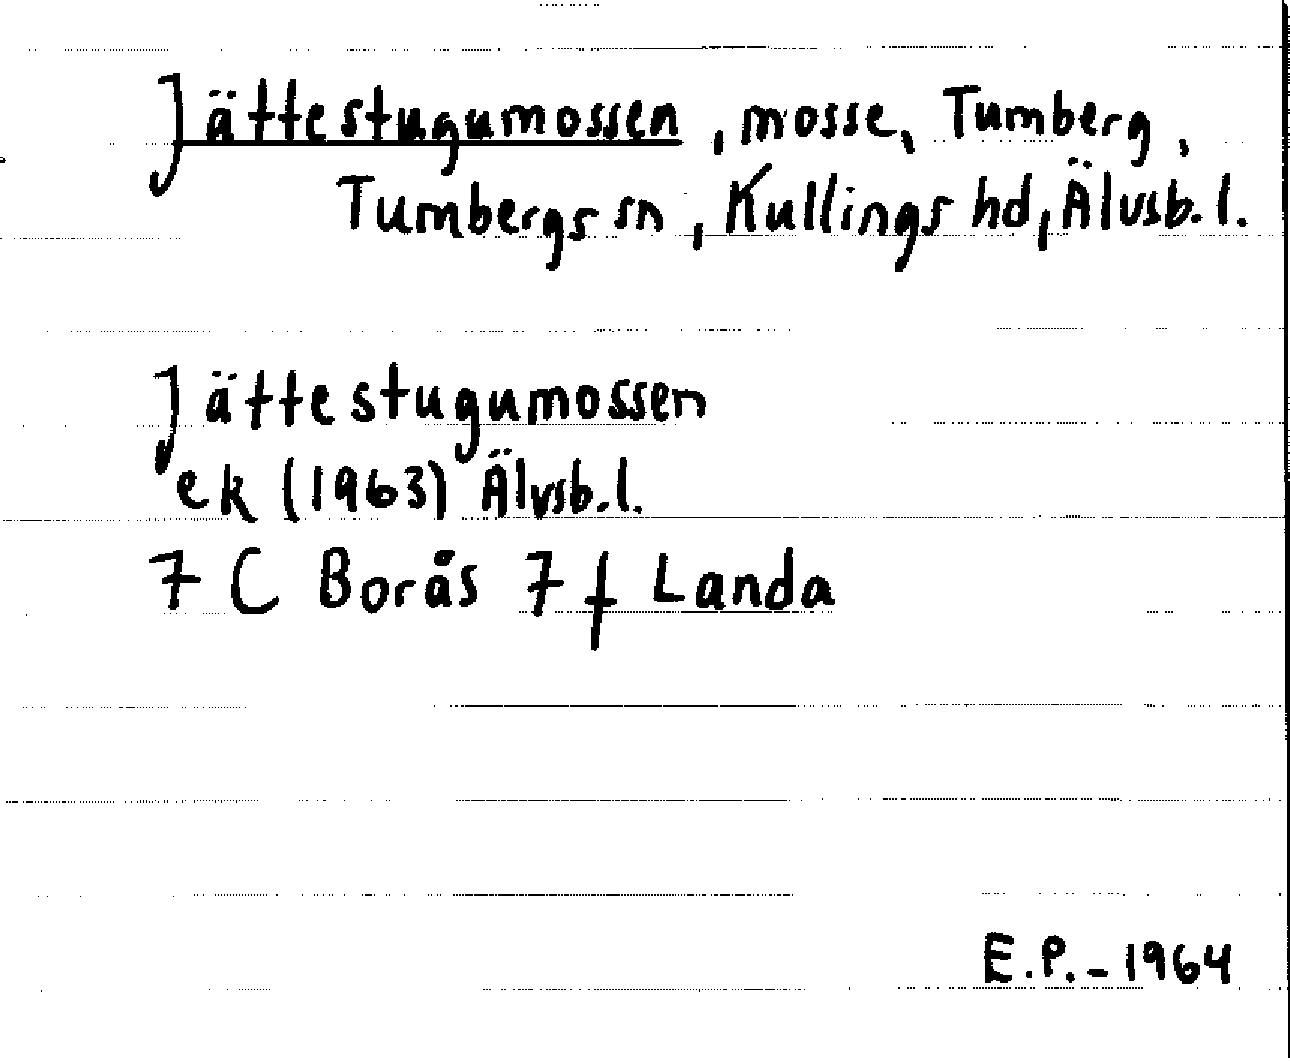 Jättestugumossen, mosse, Tumberg,
Tumbergs sn, Kullings hd, Älvsb. l.
Jättestugumossen
ek (1963) Älvsb. l.
7 C Borås 7 f Landa
E.P. - 1964